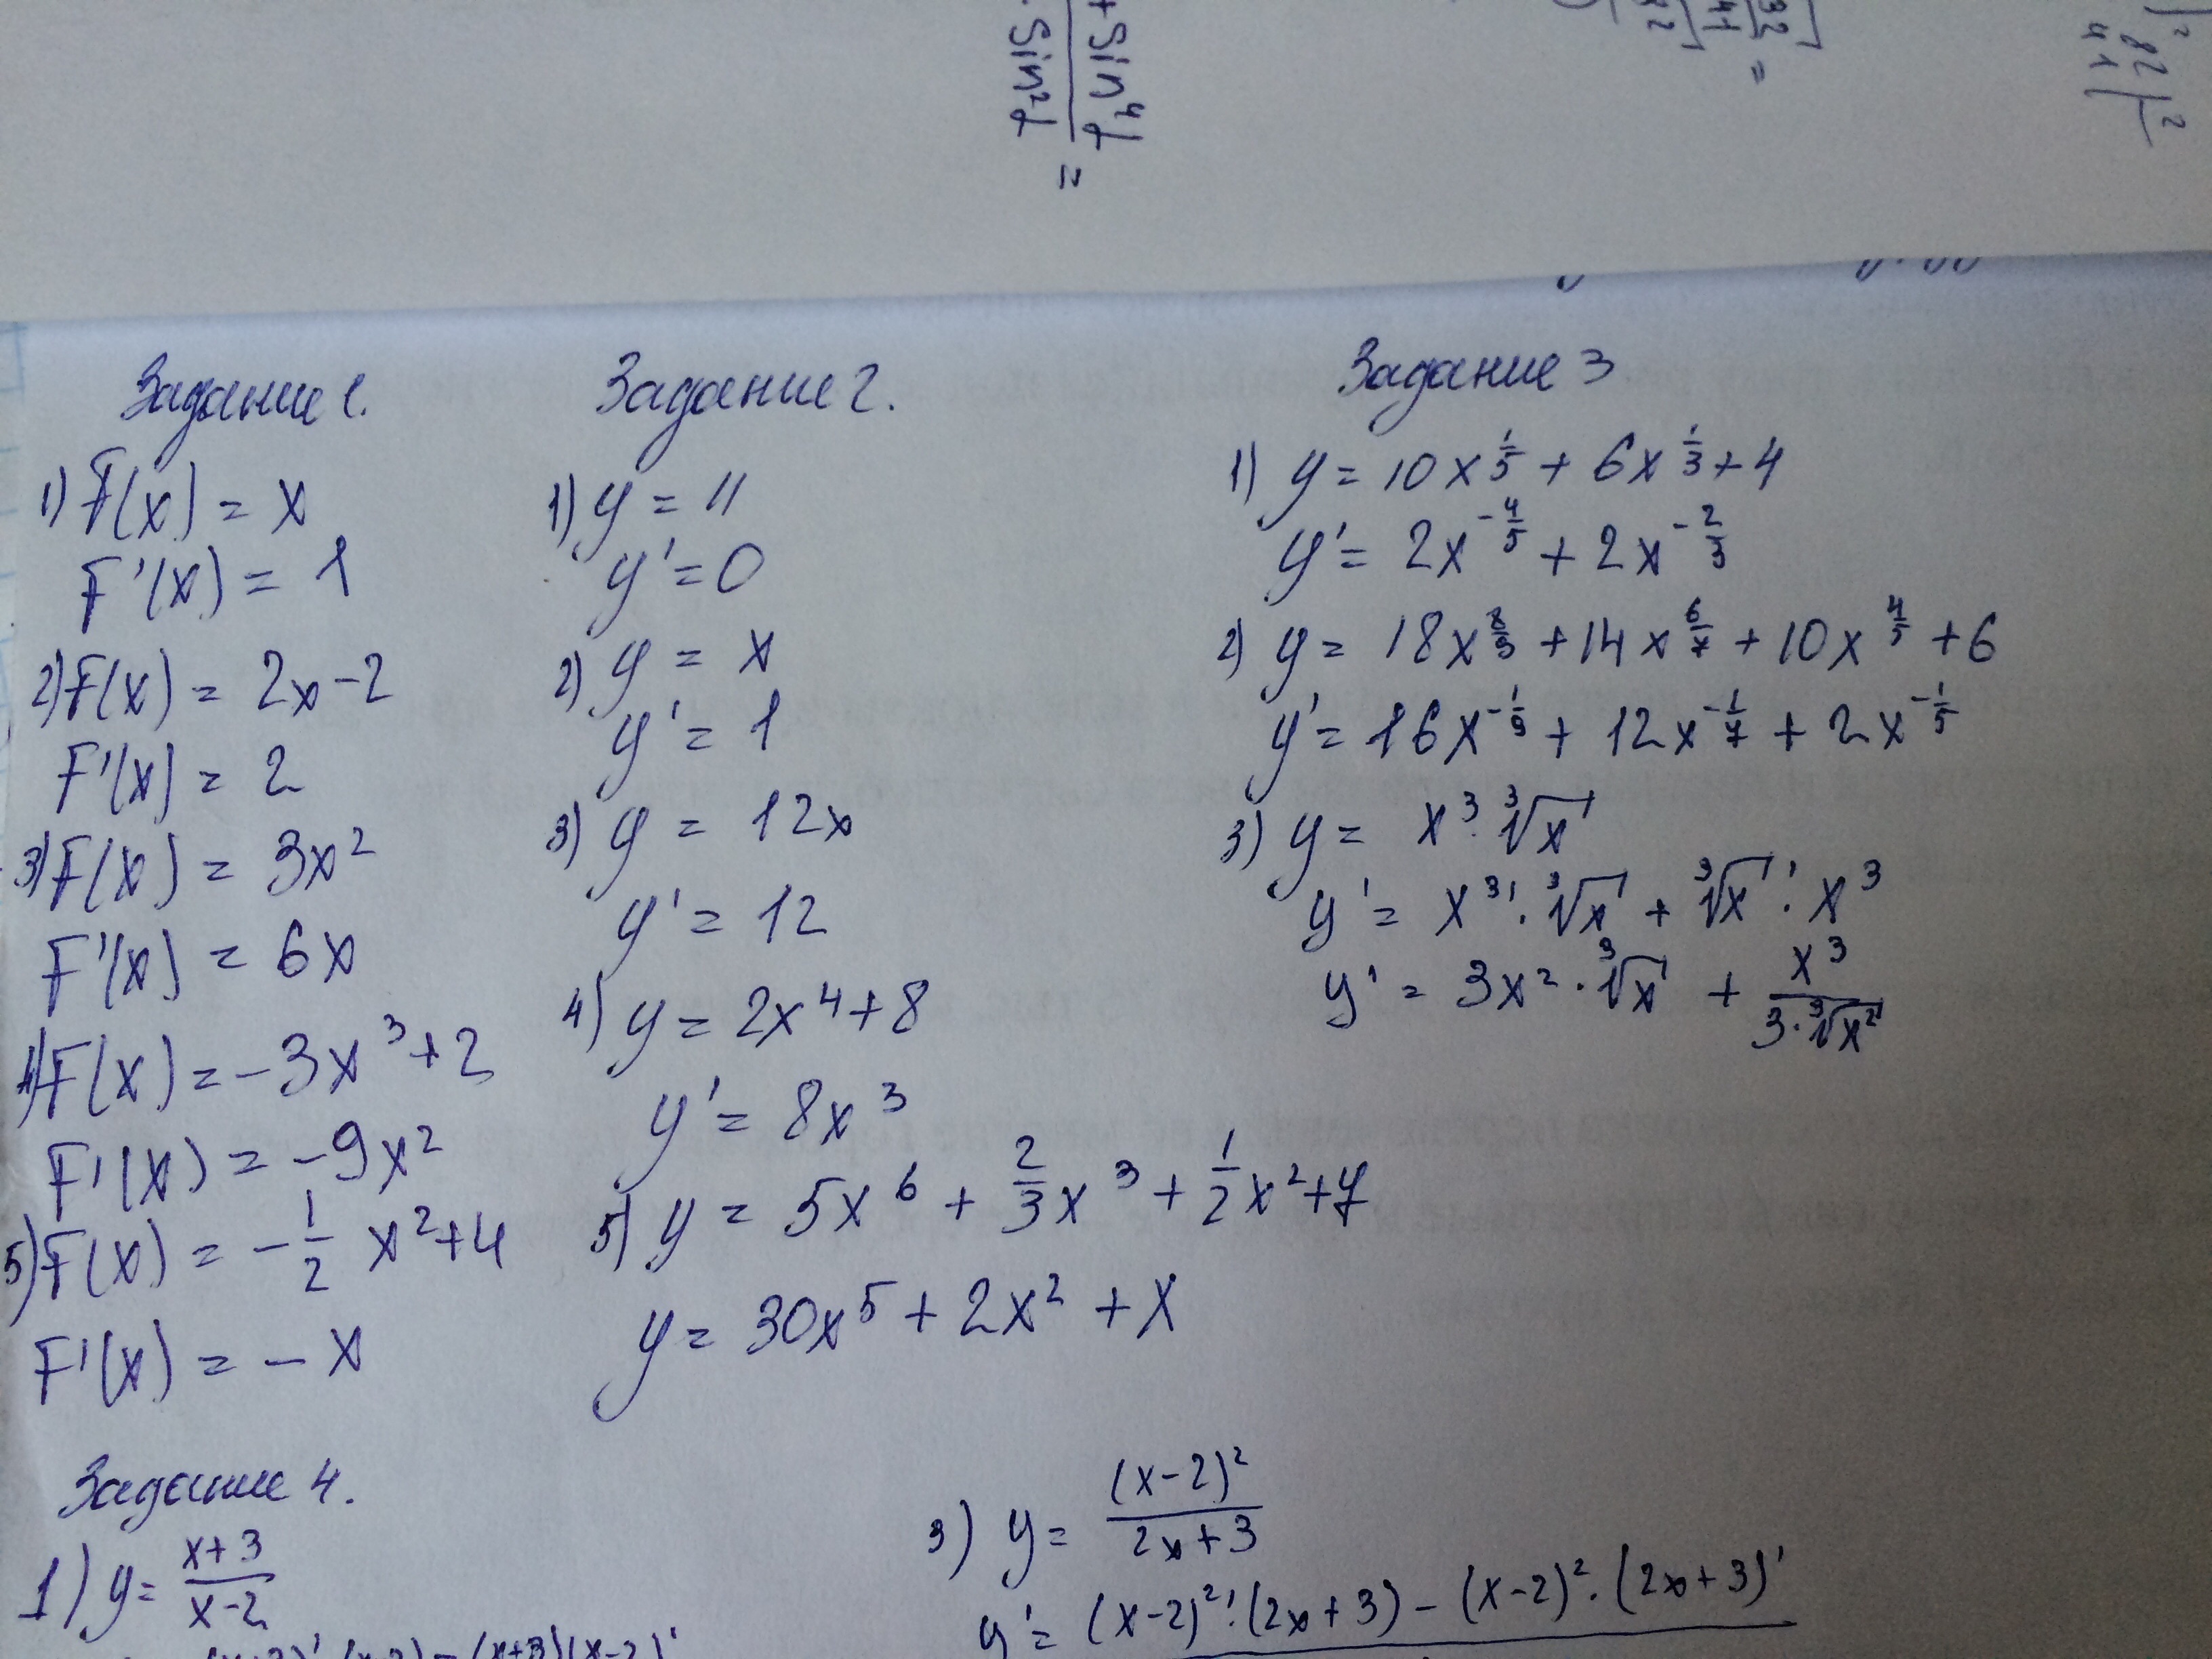 + Sin⁴α
- Sin²α
=
Задание 1.
1) F(x) = x
F'(x) = 1
2) F(x) = 2x-2
F'(x) = 2
3) F(x) = 3x²
F'(x) = 6x
4) F(x) = -3x³+2
F'(x) = -9x²
5) F(x) = -1/2 x²+4
F'(x) = -x
Задание 2.
1) y = 11
y' = 0
2) y = x
y' = 1
3) y = 12x
y' = 12
4) y = 2x⁴+8
y' = 8x³
5) y = 5x⁶ + 2/3 x³ + 1/2 x² + 7
y = 30x⁵ + 2x² + x
Задание 3
1) y = 10x^(1/5) + 6x^(1/3) + 4
y' = 2x^(-4/5) + 2x^(-2/3)
2) y = 18x^(8/9) + 14x^(6/7) + 10x^(4/5) + 6
y' = 16x^(-1/9) + 12x^(-1/7) + 2x^(-1/5)
3) y = x³·∛x
y' = x³'·∛x + ∛x'·x³
y' = 3x²·∛x + x³/(3·∛x²)
Задание 4.
1) y = (x+3)/(x-2)
3) y = (x-2)²/(2x+3)
y' = (x-2)²'·(2x+3) - (x-2)²·(2x+3)'